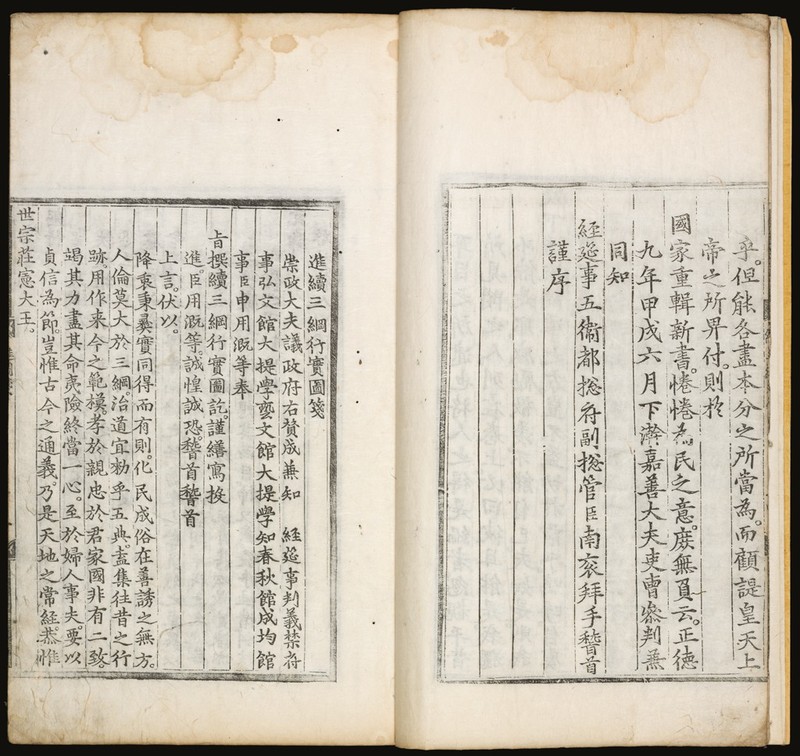 乎。但能各盡本分之所當為。而顧諟皇天上
帝之所畀付。則於
國家重輯新書。惓惓為民之意。庶無負云。正德
九年甲戌六月下澣嘉善大夫吏曹叅判兼
同知
経筵事五衛都揔府副揔管臣南衮拜手稽首
謹序
進續三綱行實圖箋
崇政大夫議政府右贊成兼知　経筵事判義禁府
事弘文館大提學藝文館大提學知春秋館成均館
事臣申用漑等奉
旨撰續三綱行實圖訖。謹繕寫投
進。臣用漑等。誠惶誠恐。稽首稽首
上言。伏以。
降衷秉彝實同得而有則。化民成俗在善誘之無方。
人倫莫大於三綱。治道宜勑乎五典。盍集往昔之行
跡用作来今之範模。孝於親忠於君家國非有二致
竭其力盡其命夷險終當一心。至於婦人事夫。要以
貞信為節。豈惟古今之通義。乃是天地之常経。恭惟
世宗莊憲大王。